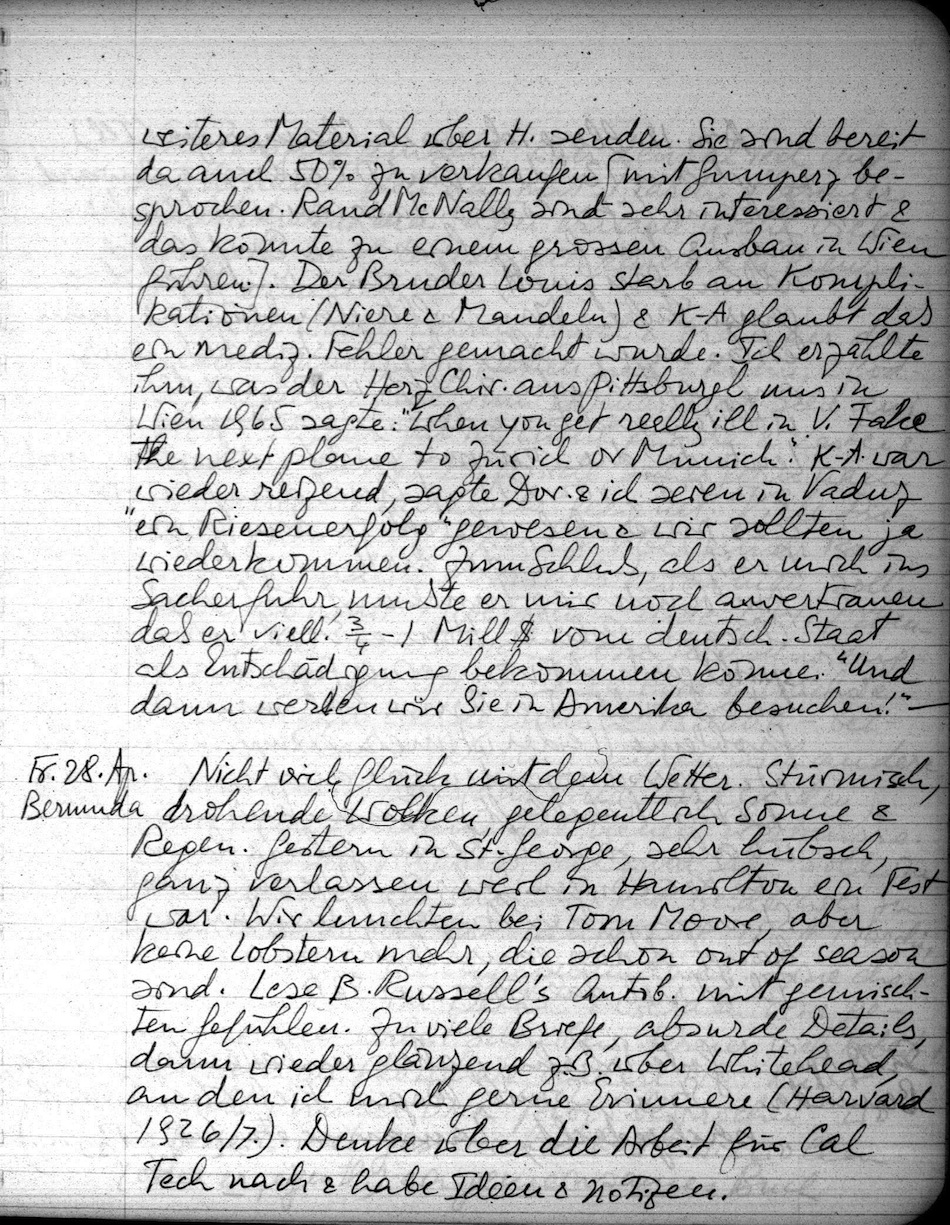 weiteres Material über H. senden. Sie sind bereit
da auch 50% zu verkaufen [mit Gumperz be-
sprochen. Rand McNally sind sehr interessiert &
das könnte zu einem grossen Ausbau in Wien
führen]. Der Bruder Louis starb an Kompli-
kationen (Niere & Mandeln) & K-A glaubt daß
ein mediz. Fehler gemacht wurde. Ich erzählte
ihm, was der Herz Chir. aus Pittsburgh uns in
Wien 1965 sagte: "When you get really ill in V. Take
the next plane to Zürich or Munich". K-A. war
wieder reizend, sagte Dor. & ich seien in Vaduz
"ein Riesenerfolg" gewesen & wir sollten ja
wiederkommen. Zum Schluß, als er mich ins
Sacher fuhr, mußte er mir noch anvertrauen
daß er viell. 3/4 - 1 Mill $ vom deutsch. Staat
als Entschädigung bekommen könne. "Und
dann werden wir Sie in Amerika besuchen!" —
Fr. 28. Ap. Nicht viel Glück mit dem Wetter. Stürmisch,
Bermuda drohende Wolken, gelegentlich Sonne &
Regen. Gestern in St. George, sehr hübsch,
ganz verlassen weil in Hamilton ein Fest
war. Wir lunchten bei Tom Moore, aber
keine Lobstern mehr, die schon out of season
sind. Lese B. Russell's Autob. mit gemisch-
ten Gefühlen. Zu viele Briefe, absurde Details,
dann wieder glänzend z.B. über Whitehead,
an den ich mich gerne Erinnere (Harvard
1926/7.). Denke über die Arbeit für Cal
Tech nach & habe Ideen & Notizen.